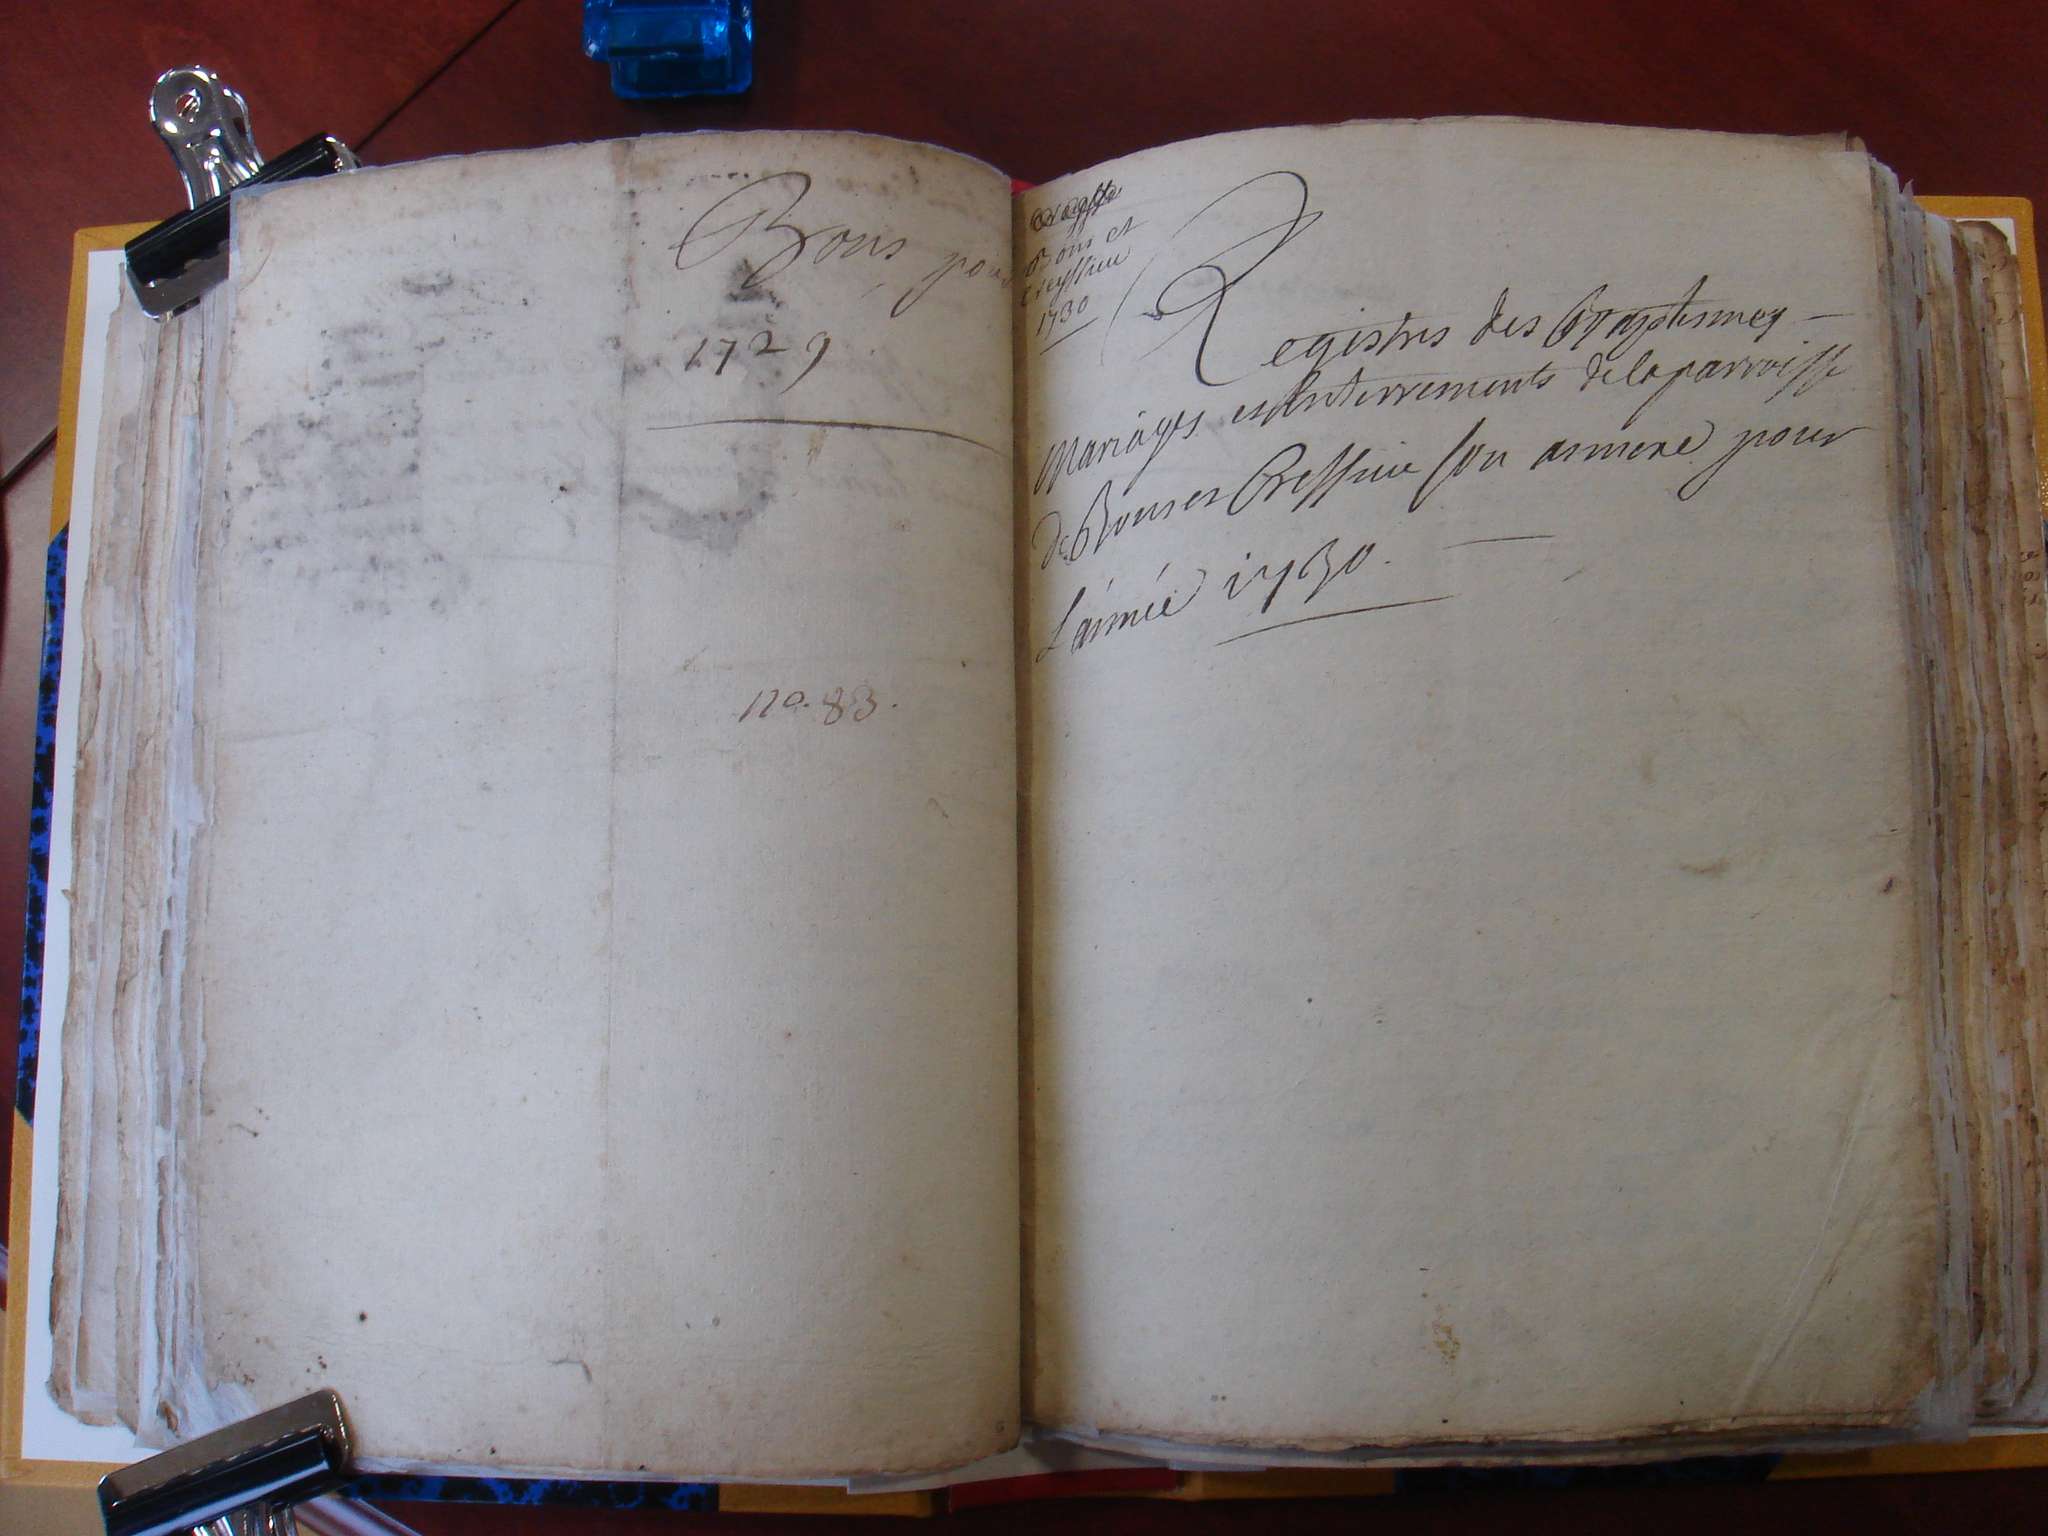 Bons pour
1729
no. 83.
Bons et
Creyssieu
1730
Registres des Baptesmes
Mariages et Enterrements de la parroisse
de Bons et Cressieu son annexe pour
L'année 1730.